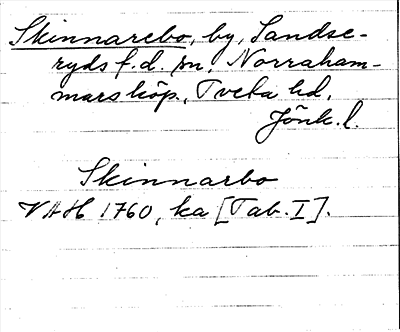 Skinnarebo, by, Sandse-
ryds f.d. sn, Norraham-
mars köp., Tveta hd,
Jönk. l.
Skinnarbo
VAH 1760, ka [Tab. I].